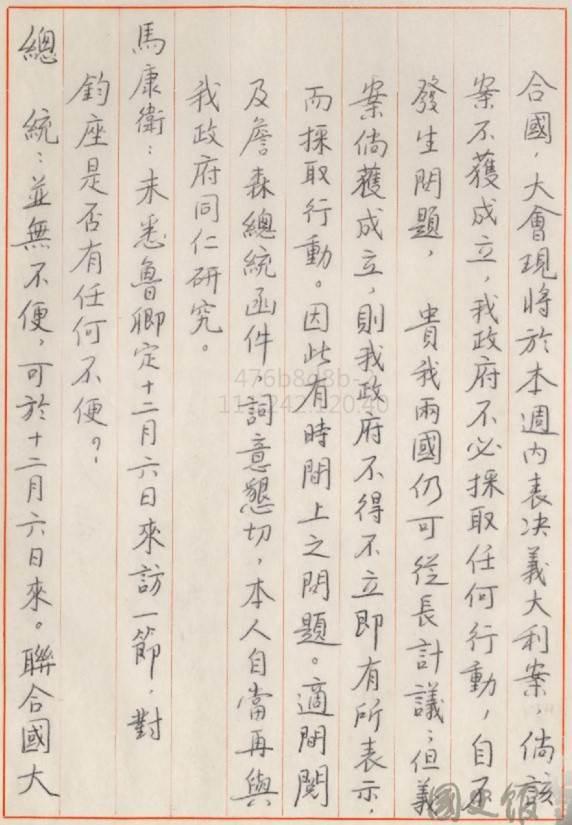 合國，大會現將於本週內表決義大利案，倘該
案不獲成立，我政府不必採取任何行動，自不
發生問題，　貴我兩國仍可從長計議；但義
案倘獲成立，則我政府不得不立即有所表示，
而採取行動。因此有時間上之問題。適間閱
及詹森總統函件，詞意懇切，本人自當再與
我政府同仁研究。
馬康衛：未悉魯卿定十二月六日來訪一節，對
鈞座是否有任何不便？
總　統：並無不便，可於十二月六日來。聯合國大
476b8d8b-
國史館